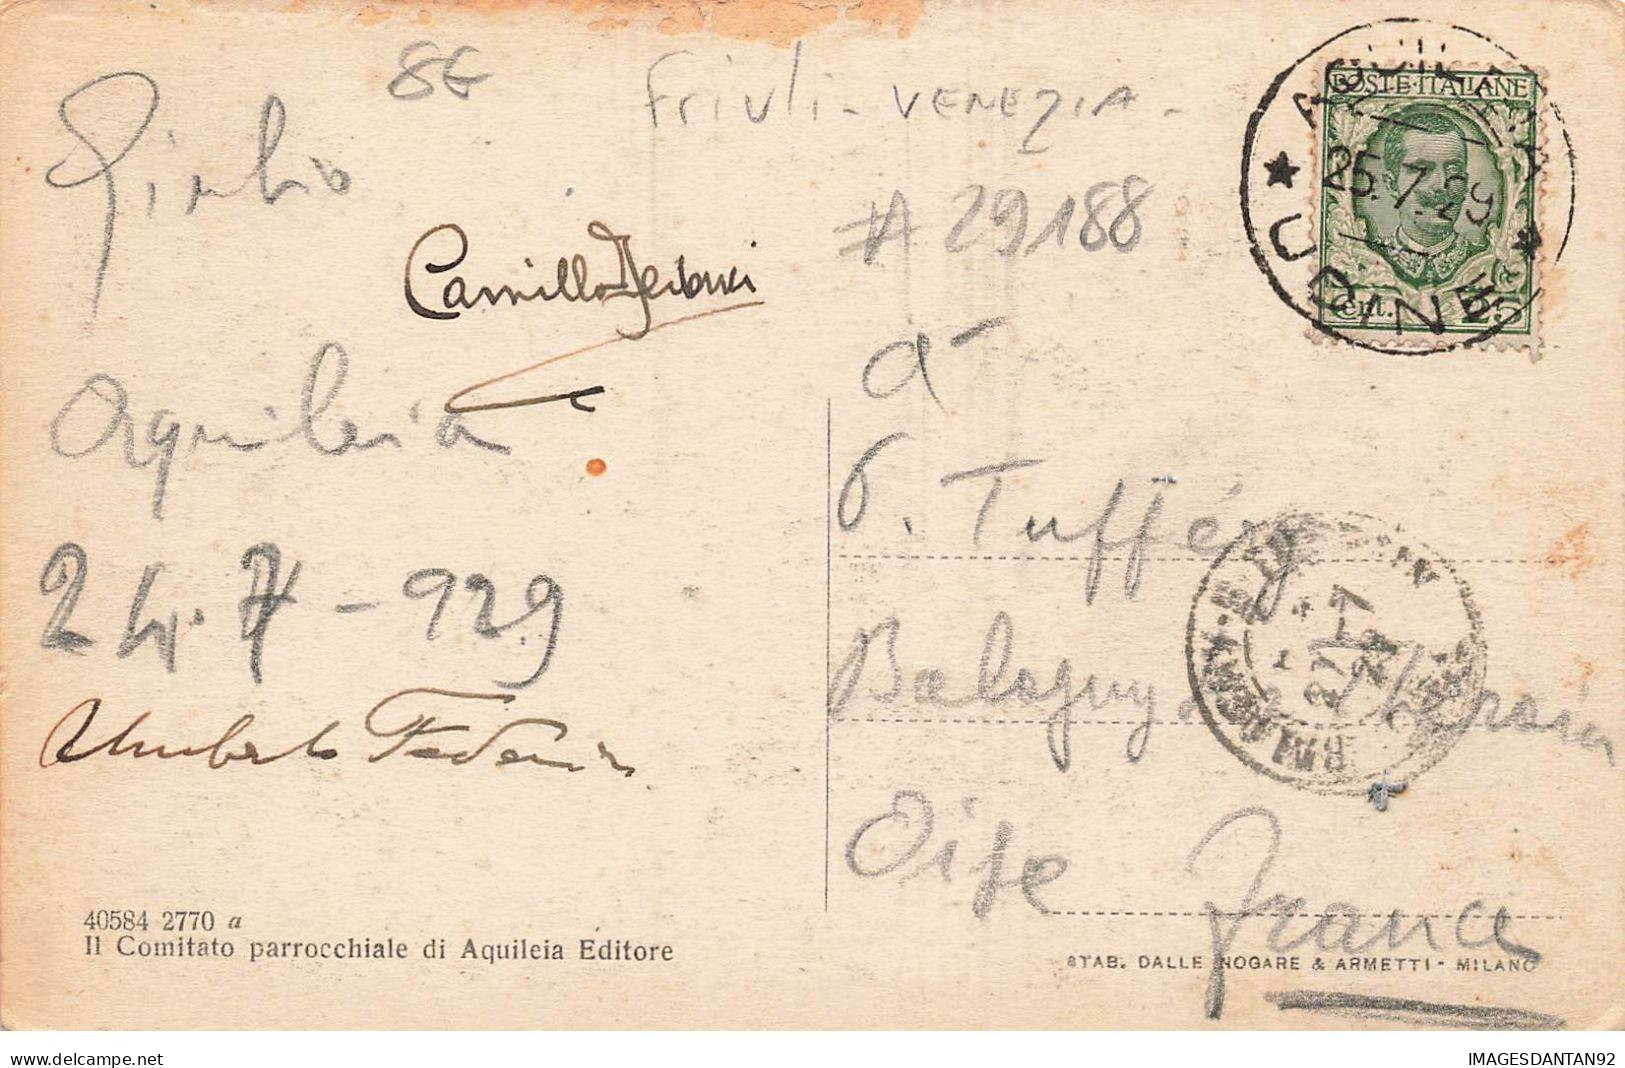 8€
Friuli - VENEZIA -
# 29188
POSTE·ITALIANE
AQUILEIA
25.7.29
UDINE
Cent. 25
Camillo
Aquileia
24.7-929
Umberto
à
Tufféry
Balagny Thérain
Oise
France
BALAGNY
27-7
29
40584 2770 a
Il Comitato parrocchiale di Aquileia Editore
STAB. DALLE NOGARE & ARMETTI - MILANO
delcampe.net
IMAGESDANTAN92